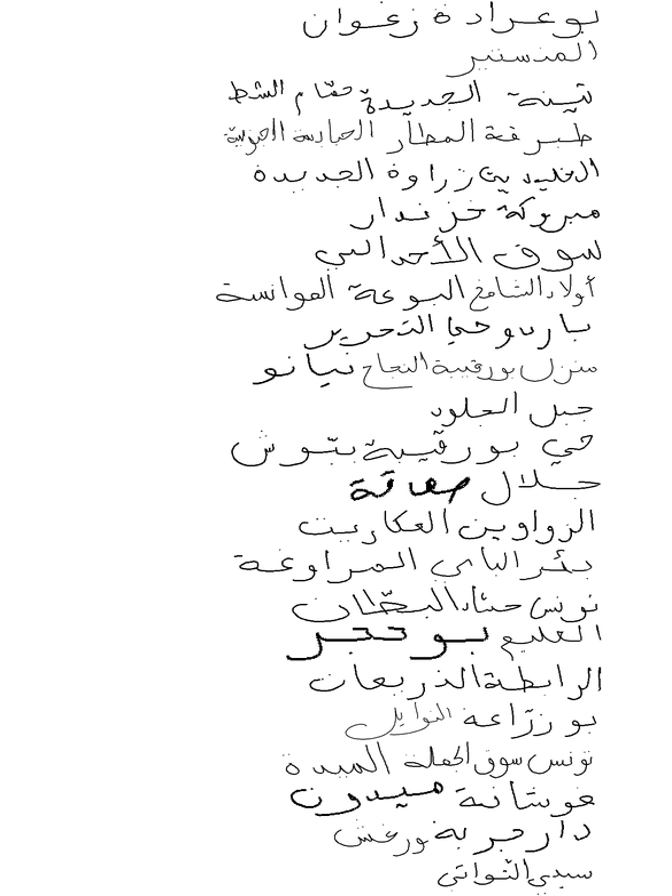 بوعرادة زغوان
المنستير
تينة الجديدة حشام الشط
طبرقة المطار الحبابسة الجنوبية
الخليدين زراوة الجديدة
مبروكة خزندار
سوق الأحد البي
أولاد الشامخ البوعة العوانسة
باردو حي التحرير
منزل بورقيبة النجاح نيانو
جبل الجلود
حي بورقيبة بتوش
جلال صفاقة
الزواوين العكاريت
بئر الباي المراوغة
تونس حشاد البطان
القليع بوحجر
الرابطة الذريعات
بوزراعة النوايل
تونس سوق الجملة الميدة
غوشانة ميدون
دار جربة ورغش
سيدي التواتي